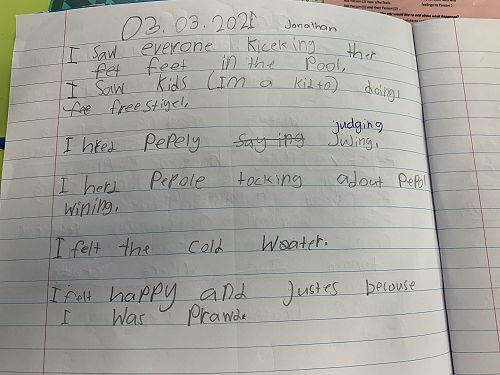 feelings to Person 2
03.03.2021 Jonathan
I Saw everone Kiceking ther
fet feet in the Pool.
I Saw Kids (Im a kid to) doing
fee freestiyel.
judging
I hred Pepely Say ing Juding.
I herd Pepole tocking adout Pepol
wining.
I felt the cold Woater.
I felt happy and Justes becouse
I Was Prawd.